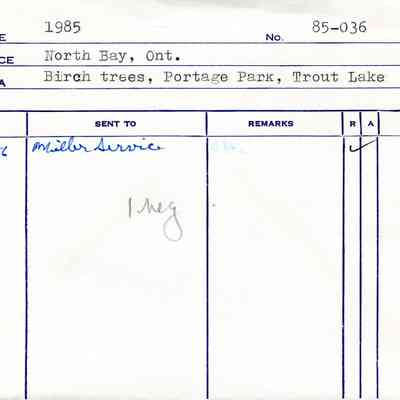 E 1985 No. 85-036
CE North Bay, Ont.
A Birch trees, Portage Park, Trout Lake
SENT TO REMARKS R A
Miller Service ✓
1 neg